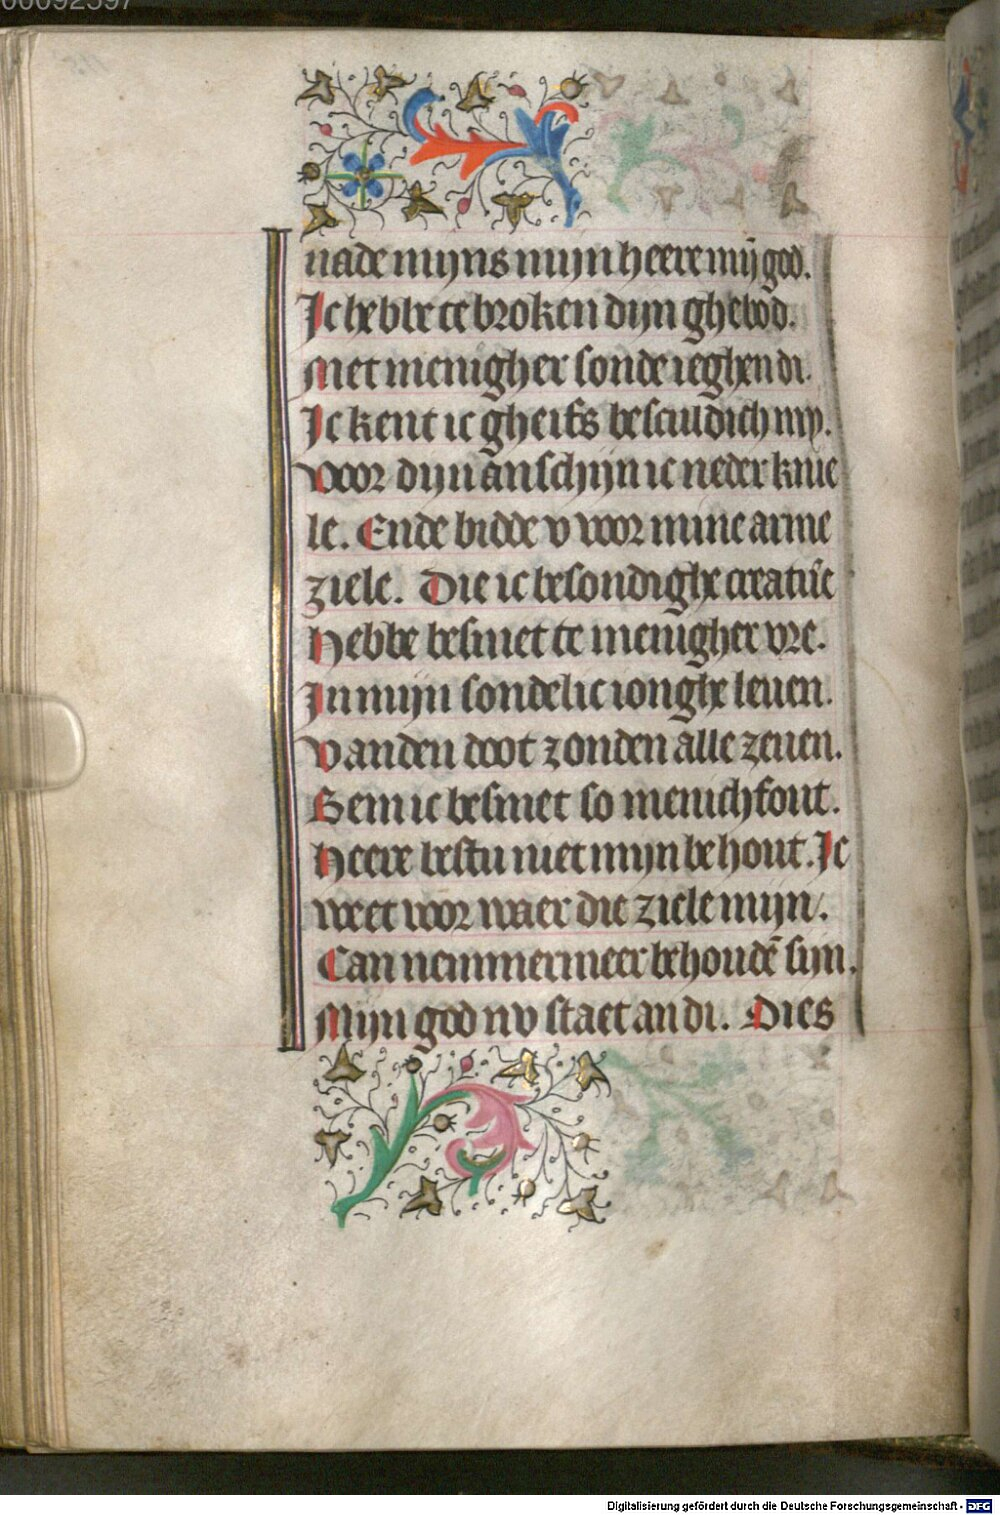 00092597
nade mijns mijn heere mij̄ god.
Ic hebbe te broken dijn ghebod.
Met menigher sonde ieghen di.
Ic kent ic gheifs besculdich my.
Voor dijn anschijn ic neder knie
le. Ende bidde v voor mine arme
ziele. Die ic besondighe creatur̄e
Hebbe besmet te menigher vre.
In mijn sondelic ionghe leuen.
Vanden doot zonden alle zeuen.
Bem ic besmet so menichfout.
Heere bestu niet mijn behout. Ic
weet voor waer die ziele mijn.
Can nemmermeer behoudē sijn.
Mijn god nv staet an di. Dies
Digitalisierung gefördert durch die Deutsche Forschungsgemeinschaft - DFG